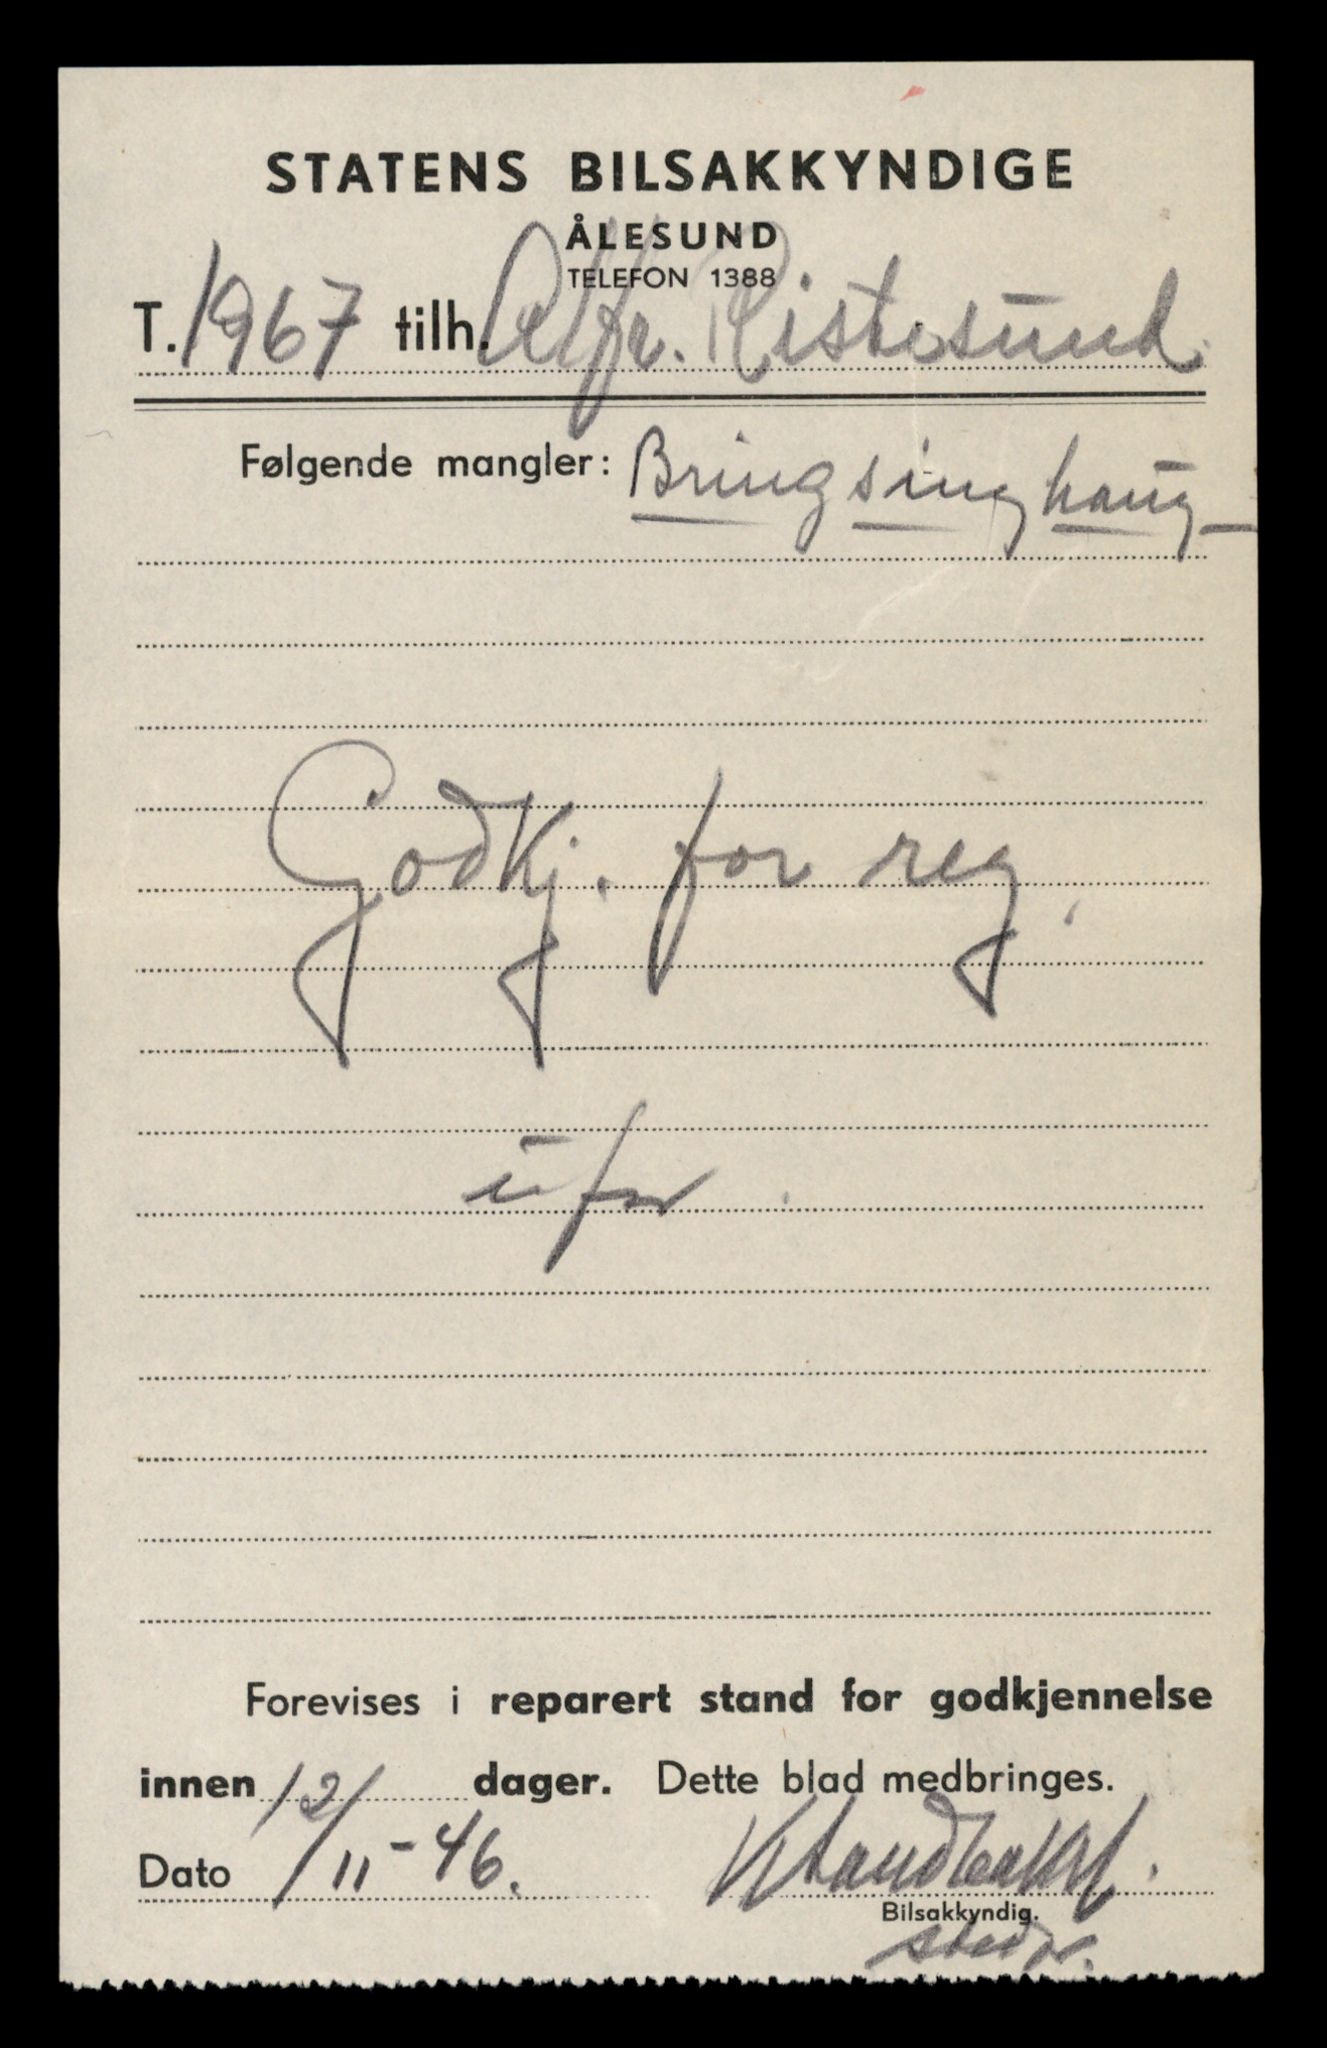 STATENS BILSAKKYNDIGE
ÅLESUND
TELEFON 1388
T. 1967 tilh. Alfr. Ristesund.
Følgende mangler: Bringsinghaug
Godkj. for reg.
Forevises i reparert stand for godkjennelse
innen dager. Dette blad medbringes.
Dato 12/11-46.
Bilsakkyndig.